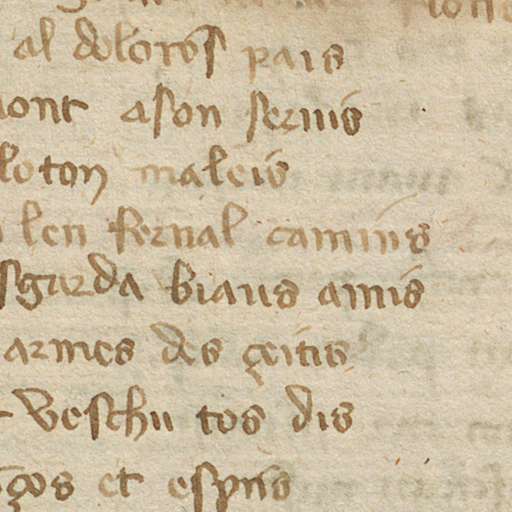 al doloros pais
mont ason seruis
loton maleis
len fernal camins
sgarda biaus amis
armes des çeitis
veschu tos dis
ços et espris